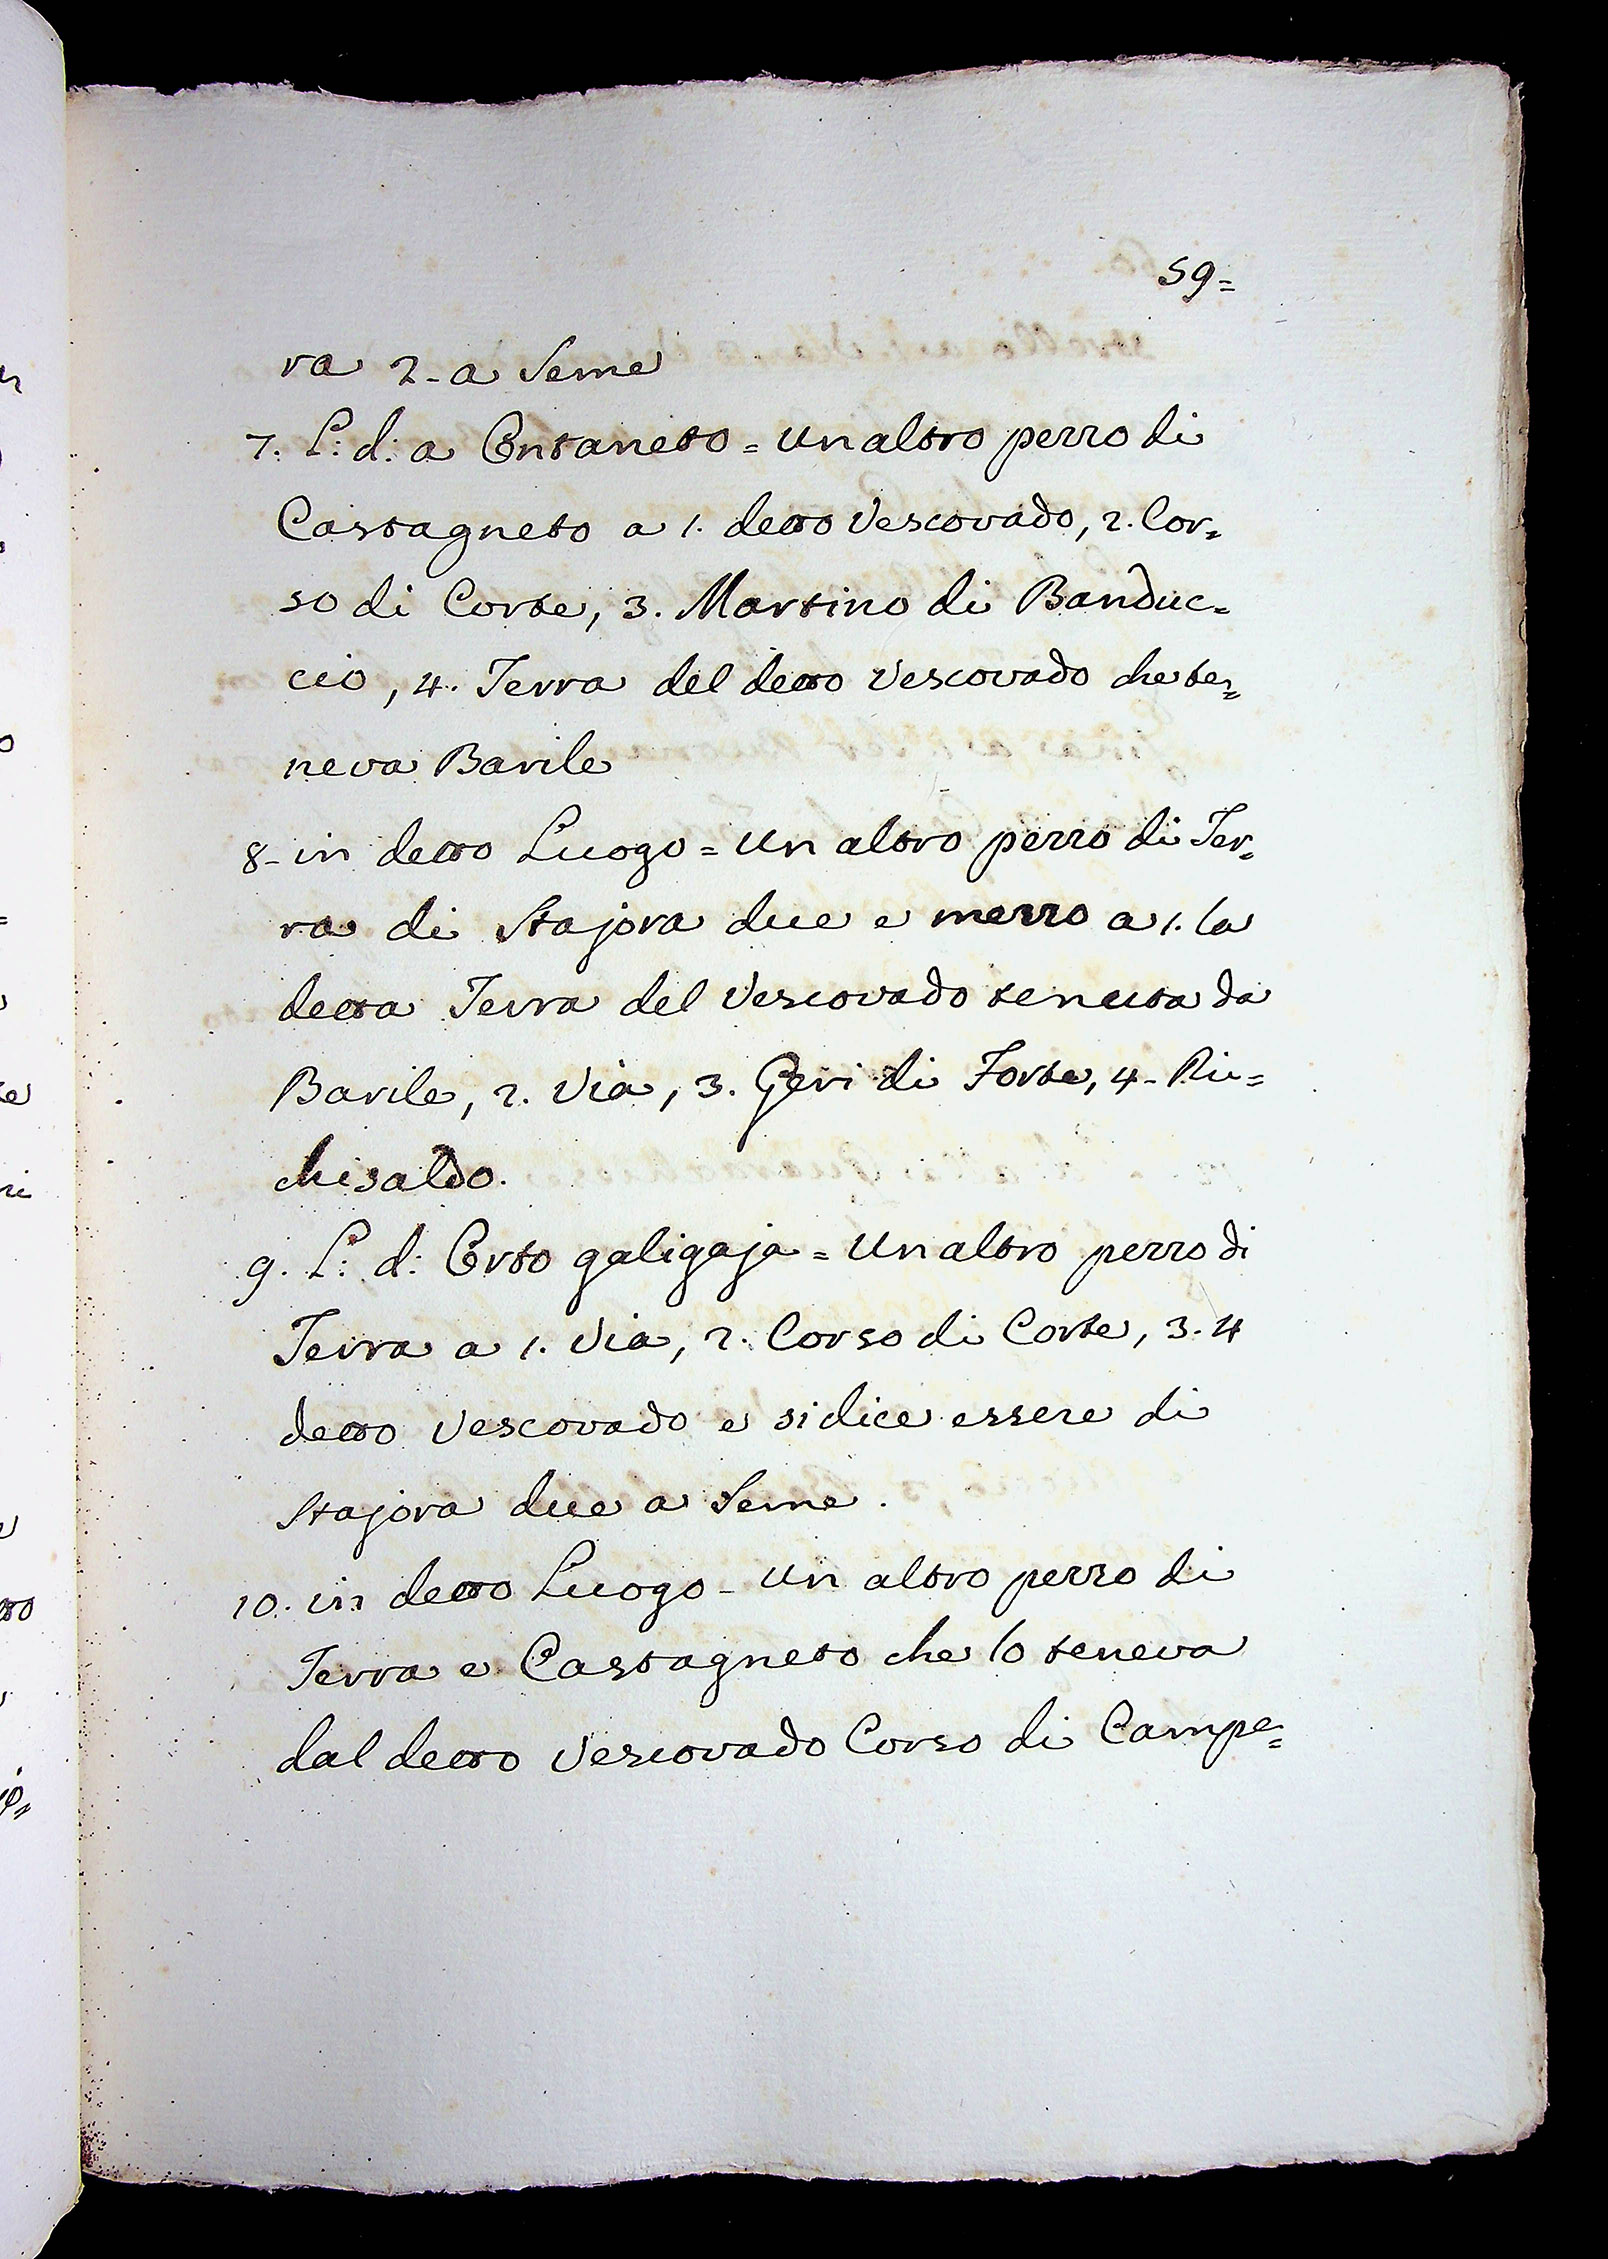 59=
ra 2- a Seme
7. L: d: a Ontaneto = un altro pezzo di
Castagneto a 1. detto Vescovado, 2. Cor=
so di Corte, 3. Martino di Banduc=
cio, 4. Terra del detto Vescovado che te=
neva Barile
8- in detto Luogo = un altro pezzo di Ter=
ra di Stajora due e mezzo a 1. la
detta Terra del Vescovado tenuta da
Barile, 2. Via, 3. Geri di Forte, 4- Ric=
chisaldo.
9. L: d: Orto galigaja = un altro pezzo di
Terra a 1. Via, 2. Corso di Corte, 3. 4
detto Vescovado e si dice essere di
Stajora due a Seme.
10. in detto Luogo - un altro pezzo di
Terra e Castagneto che lo teneva
dal detto Vescovado Corso di Campe=